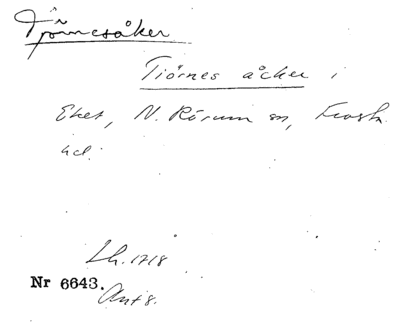 Tjörnesåker
Tiörnes åcker i
Eket, N. Rörum sn, Frosta
hd.
Lh. 1718
Nr 6643.
Ant 8.